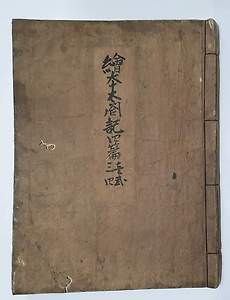 繪本太閤記四篇三